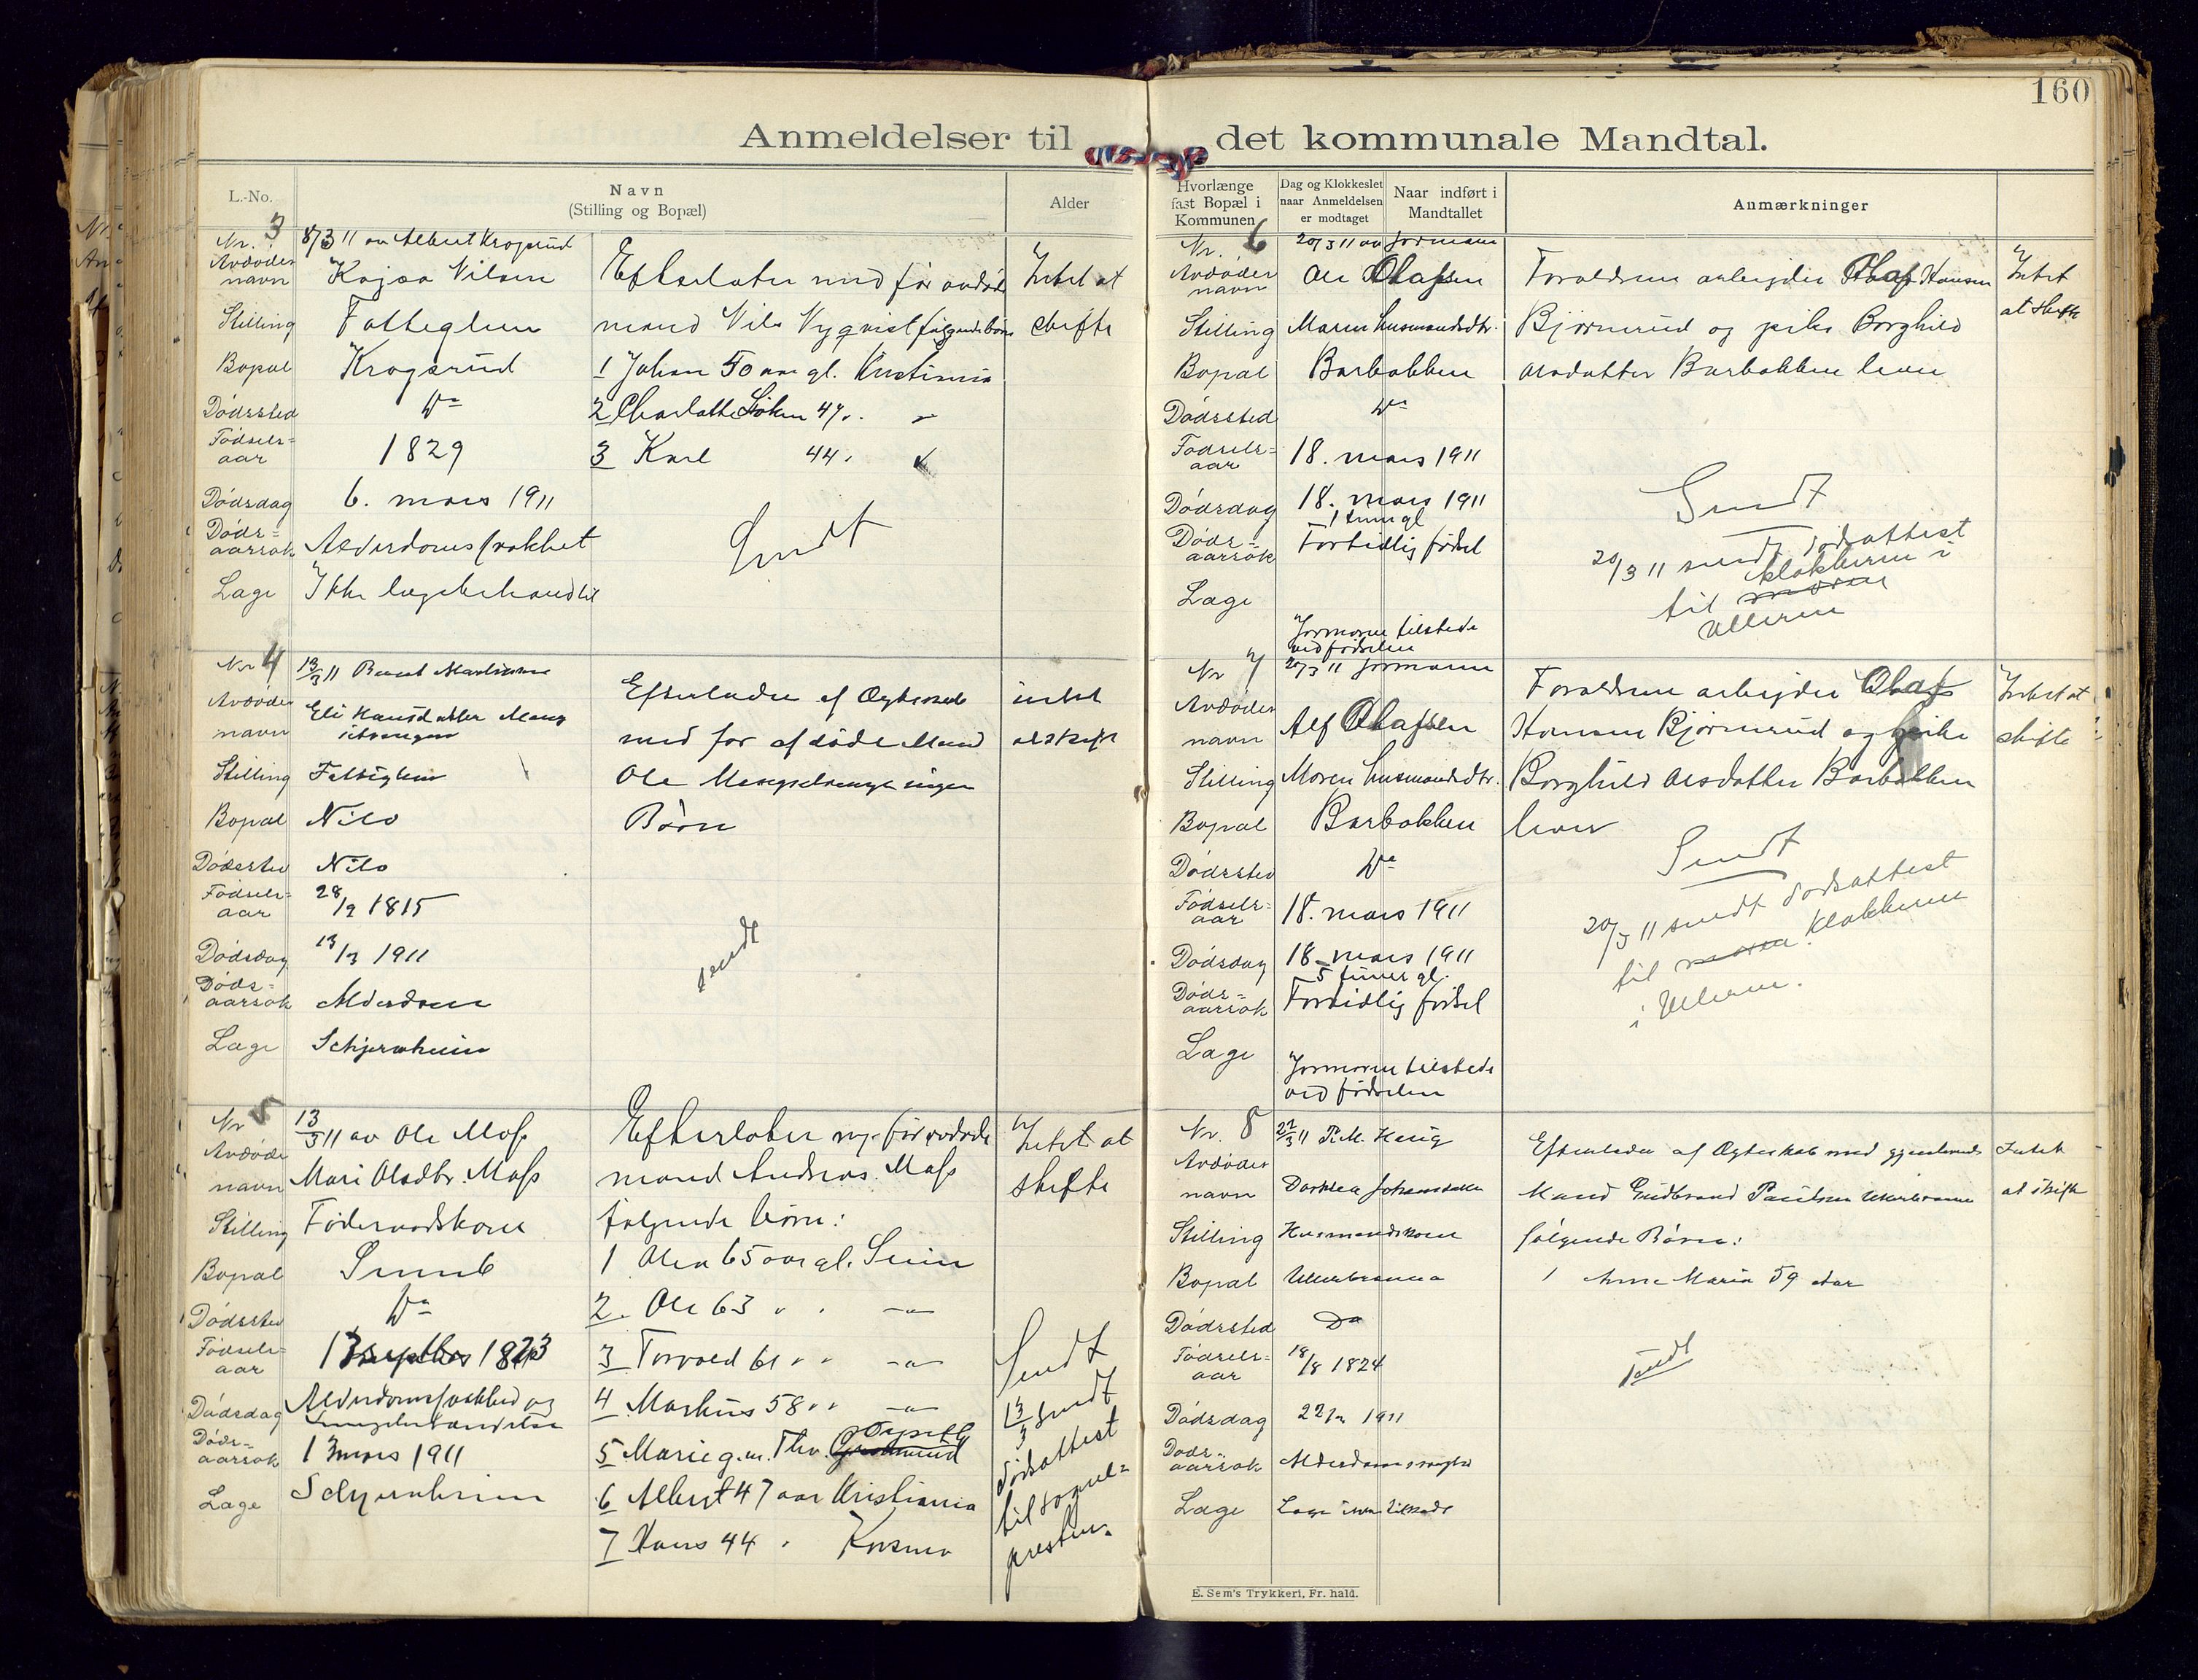 160
Anmeldelser til det kommunale Mandtal.
L.-No.
Navn
(Stilling og Bopæl)
Alder
Nr. 3
8/3 11 av Albert Krogsrud
Avdødes
navn
Kajsa Nilsen
Stilling
Fattiglem
Bopæl
Krogsrud
Dødssted
Do
Fødsels-
aar
1829
Dødsdag
6. mars 1911
Døds-
aarsak
Alderdomssvakhet
Læge
Ikke lægebehandlet
Efterlater med før avdøde
mand Nils Nyqvist følgende børn
1 Johan 50 aar gl. Kristiania
2 Charlotte 47 " "
3 Karl 44 "
Sendt
Intet at
skifte
Nr 4
13/3 11 Bernt
Avdødes
navn
Eli Hansdatter
Stilling
Fattiglem
Bopæl
Nilo
Dødssted
Nilo
Fødsels-
aar
28/9 1815
Dødsdag
13/3 1911
Døds-
aarsak
Alderdom
Læge
Schjernheim
Efterlader af Ægteskab
med før afdøde Mand
Ole ingen
Børn
sendt
intet
at skifte
Nr 5
13/3 11 av Ole Moss
Avdødes
navn
Mari Olsdtr. Moss
Stilling
Føderaadskone
Bopæl
Dødssted
Do
Fødsels-
aar
1823
Dødsdag
Alderdomssvakhed og
Lungebetændelse
Døds-
aarsak
13 mars 1911
Læge
Schjernheim
Efterlater m. før avdøde
mand Andreas Moss
følgende børn:
1 Olea 65 aar gl.
2 Ole 63 " " -"-
3 Torvald 61 " " -"-
4 Markus 58 " " -"-
5 Marie g.m. Thv.
6 Albert 47 aar Kristiania
7 Hans 44 "
Intet at
skifte
Sendt
13/3 sendt
dødsattest
til sogne-
presten.
Hvorlænge
fast Bopæl i
Kommunen
Dag og Klokkeslet
naar Anmeldelsen
er modtaget
Naar indført i
Mandtallet
Anmærkninger
Nr. 6
20/3 11 av Jormoren
Avdødes
navn
Ole Olafsen
Stilling
Moren husmandsdtr.
Bopæl
Barbakken
Dødssted
Do
Fødsels-
aar
18. mars 1911
Dødsdag
18. mars 1911
1 time gl
Døds-
aarsak
Fortidlig fødsel
Læge
Jormoren tilstede
ved fødselen
Forældrene arbejder Olaf Hansen
Bjørnerud og pike Borghild
Olsdatter Barbakken lever
Sendt
20/3 11 sendt dødsattest
til klokkeren i
Ulleren
Intet
at skifte
Nr 7
20/3 11 Jormoren
Avdødes
navn
Alf Olafsen
Stilling
Moren husmandsdtr.
Bopæl
Barbakken
Dødssted
Do
Fødsels-
aar
18. mars 1911
Dødsdag
18. mars 1911
5 timer gl.
Døds-
aarsak
Fortidlig fødsel
Læge
Jormoren tilstede
ved fødselen
Forældrene arbejder Olaf
Hansen Bjørnerud og pike
Borghild Olsdatter Barbakken
lever
Sendt
20/3 11 sendt dødsattest
til klokkeren
i Ulleren.
Intet at
skifte
Nr. 8
22/3 11 P.M. Haug
Avdødes
navn
Dorthea Johansdatter
Stilling
Husmandskone
Bopæl
Dødssted
Do
Fødsels-
aar
18/8 1824
Dødsdag
22/3 1911
Døds-
aarsak
Læge
Læge ikke tilstede
Efterlader af Ægteskab med gjenlevende
Mand Gudbrand Paulsen
følgende Børn:
1 Anne Maria 59 Aar
Sendt
Intet
at skifte
E. Sem's Trykkeri, Fr.hald.